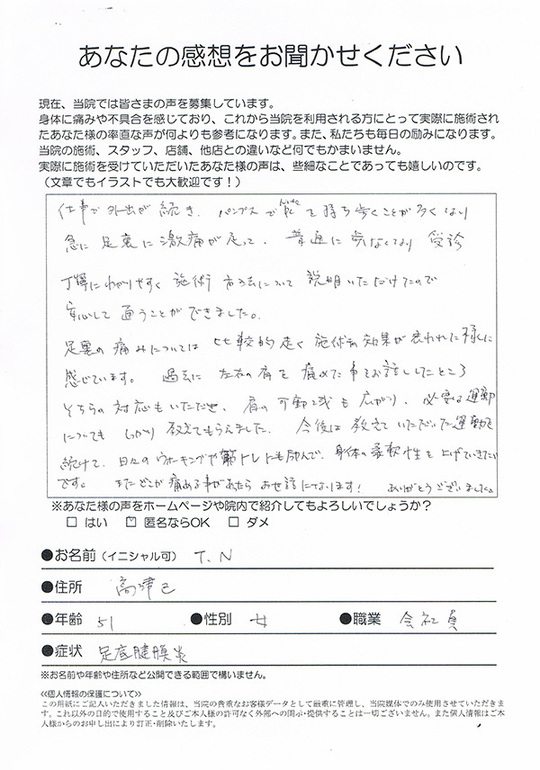 あなたの感想をお聞かせください
現在、当院では皆さまの声を募集しています。
身体に痛みや不具合を感じており、これから当院を利用される方にとって実際に施術され
たあなた様の率直な声が何よりも参考になります。また、私たちも毎日の励みになります。
当院の施術、スタッフ、店舗、他店との違いなど何でもかまいません。
実際に施術を受けていただいたあなた様の声は、些細なことであっても嬉しいのです。
（文章でもイラストでも大歓迎です！）
仕事で外出が続き、パンプスで を持ち歩くことが多くなり
急に足裏に激痛が走って、普通に歩けなくなり受診
丁寧にわかりやすく施術方法について説明いただけたので
安心して通うことができました。
足裏の痛みについては比較的速く施術の効果が表われた様に
感じています。過去に左右の肩を痛めた事をお話ししたところ
そちらの対応もいただき、肩の可動域も広がり、必要な運動
についてもしっかり教えてもらえました。今後は教えていただいた運動を
続けて、日々のウォーキングや筋トレにも励んで、身体の柔軟性を上げていきたい
です。またどこか痛める事があったらお世話になります！ありがとうございました。
※あなた様の声をホームページや院内で紹介してもよろしいでしょうか？
□ はい □ 匿名ならOK □ ダメ
●お名前（イニシャル可） T.N
●住所 高津区
●年齢 51 ●性別 女 ●職業 会社員
●症状 足底腱膜炎
※お名前や年齢や住所など公開できる範囲で構いません。
≪個人情報の保護について≫
この用紙にご記入いただきました情報は、当院の貴重なお客様データとして厳重に管理し、当院媒体でのみ使用させていただきま
す。これ以外の目的で使用すること及びご本人様の許可なく外部への開示・提供することは一切ございません。また個人情報はご本
人様からのお申し出により訂正・削除いたします。